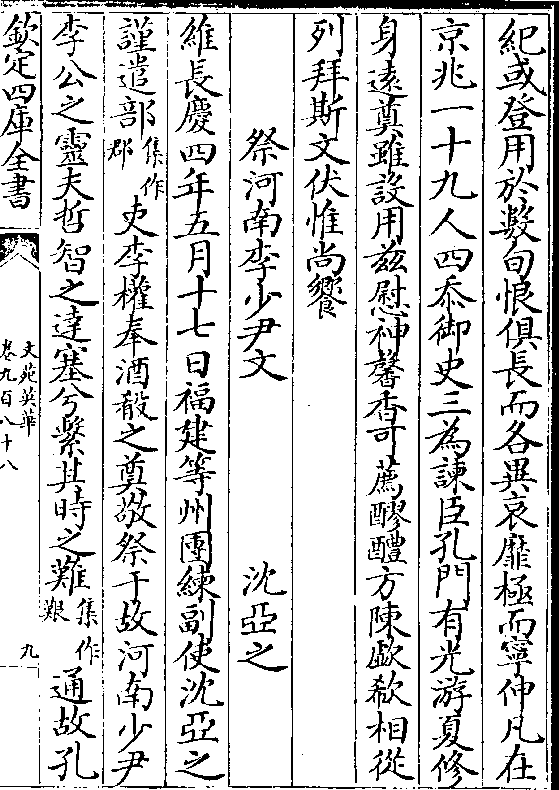 紀或登用於數旬恨俱長而各異哀靡極而寧伸凡在
京兆一十九人四忝御史三為諫臣孔門有光游夏修
身遠奠雖設用兹慰神馨香可薦醪醴方陳歔欷相從
列拜斯文伏惟尚饗
祭河南李少尹文 沈亞之
維長慶四年五月十七日福建等州團練副使沈亞之
謹遣部集作郡吏李權奉酒殽之奠敬祭于故河南少尹
李公之靈夫哲智之達塞兮繫其時之難集作艱通故孔
欽定四庫全書
文苑英華
卷九百八十八
九